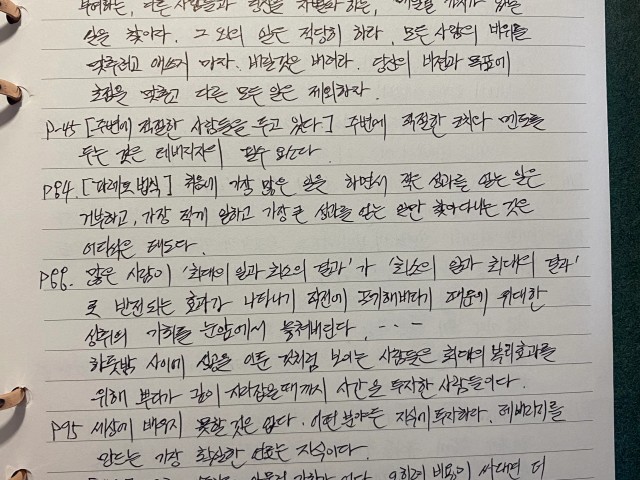 부여하는, 다른 사람들과 당신을 차별화 하는, 가치가 있는
일을 찾아라. 그 외의 일은 적당히 하라. 모든 사람의 비위를
맞추려고 애쓰지 마라. 버릴것은 버려라. 당신의 비전과 목표에
초점을 맞추고 다른 모든 일은 제외하자.
P-45 [주변에 적절한 사람들을 두고 있다] 주변에 적절한 코치나 멘토를
두는 것은 레버리지의 필수 요소다.
P84. [파레토 법칙] 처음에 가장 많은 일을 하면서 작은 성과를 얻는 일은
거부하고, 가장 적게 일하고 가장 큰 성과를 얻는 일만 찾아다니는 것은
어리석은 태도다.
P88. 많은 사람이 '최대의 일과 최소의 결과'가 '최소의 일과 최대의 결과'
로 반전되는 효과가 나타나기 직전에 포기해버리기 때문에 위대한
성취의 기회를 눈앞에서 놓쳐버린다. ---
하룻밤 사이에 성공을 이룬 것처럼 보이는 사람들은 최대의 복리효과를
위해 뿌리가 깊이 자리잡을때까지 시간을 투자한 사람들이다.
P95 세상에 배우지 못할 것은 없다. 어떤 분야든 지식에 투자하라. 레버리지를
만드는 가장 확실한 지식이다.